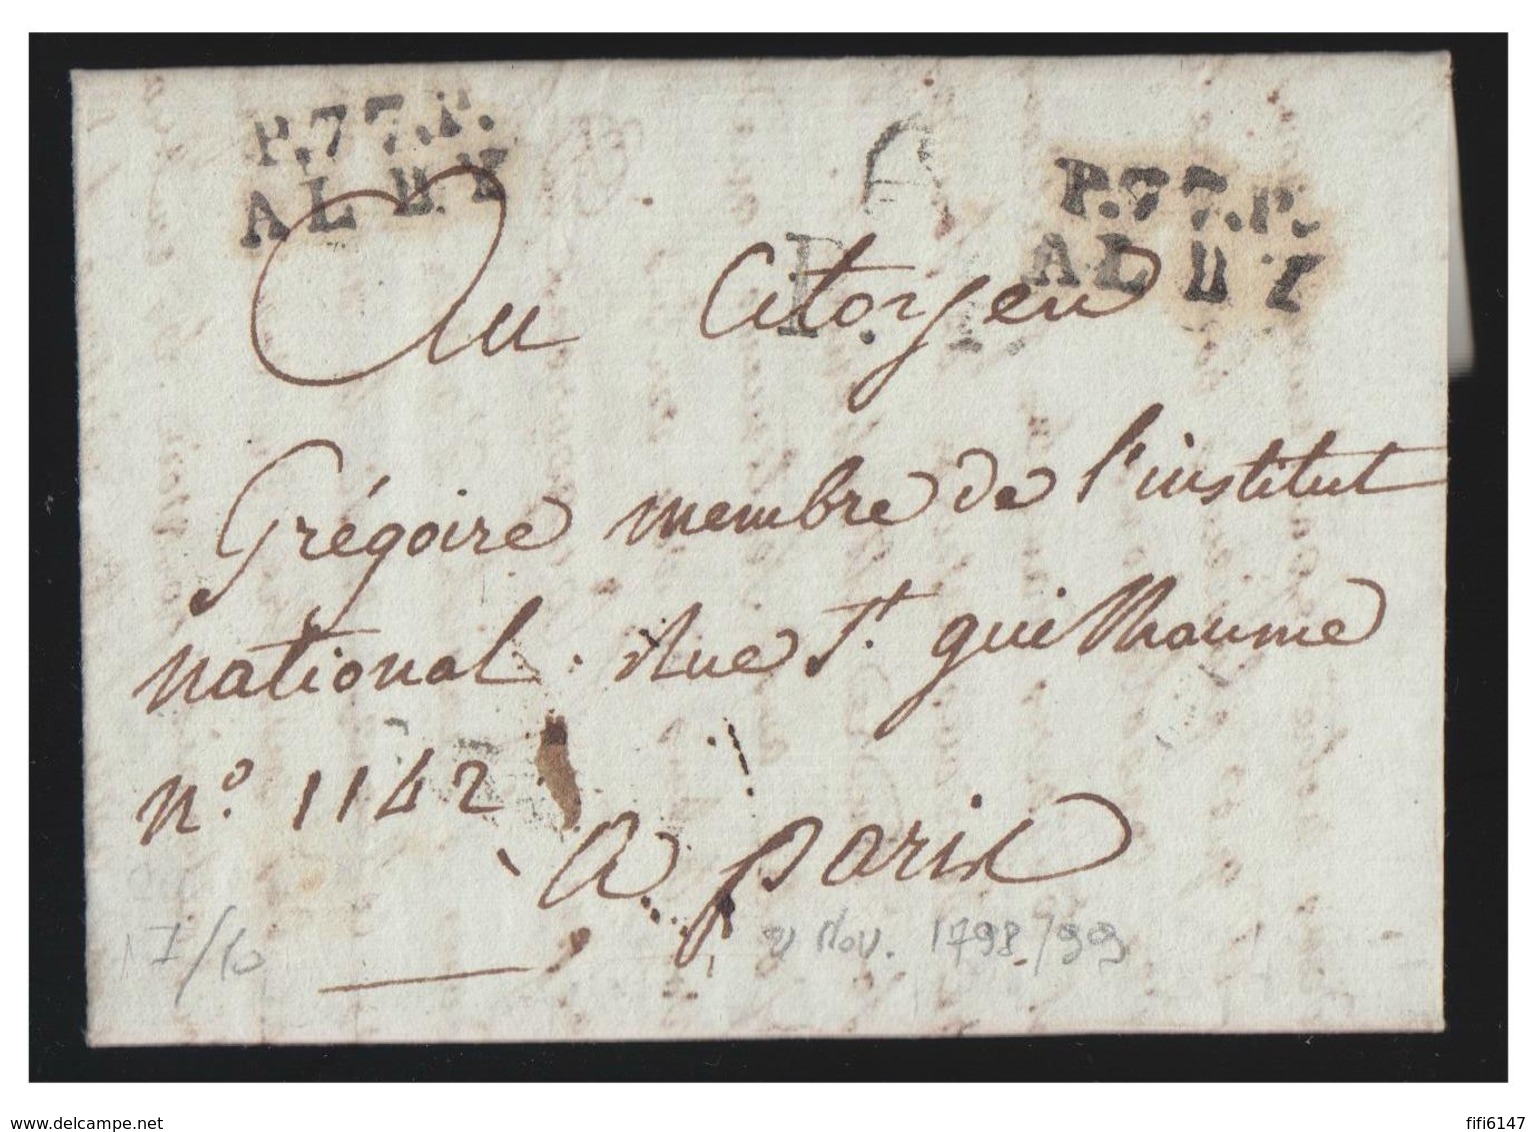 P.77.P.
ALBY
P.77.P.
ALBY
Au Citoyen
Grégoire membre de l'institut
national. Rue St. guilhaume
n.º 1142
a paris
Nov. 1798/99
www.delcampe.net
fifi6147